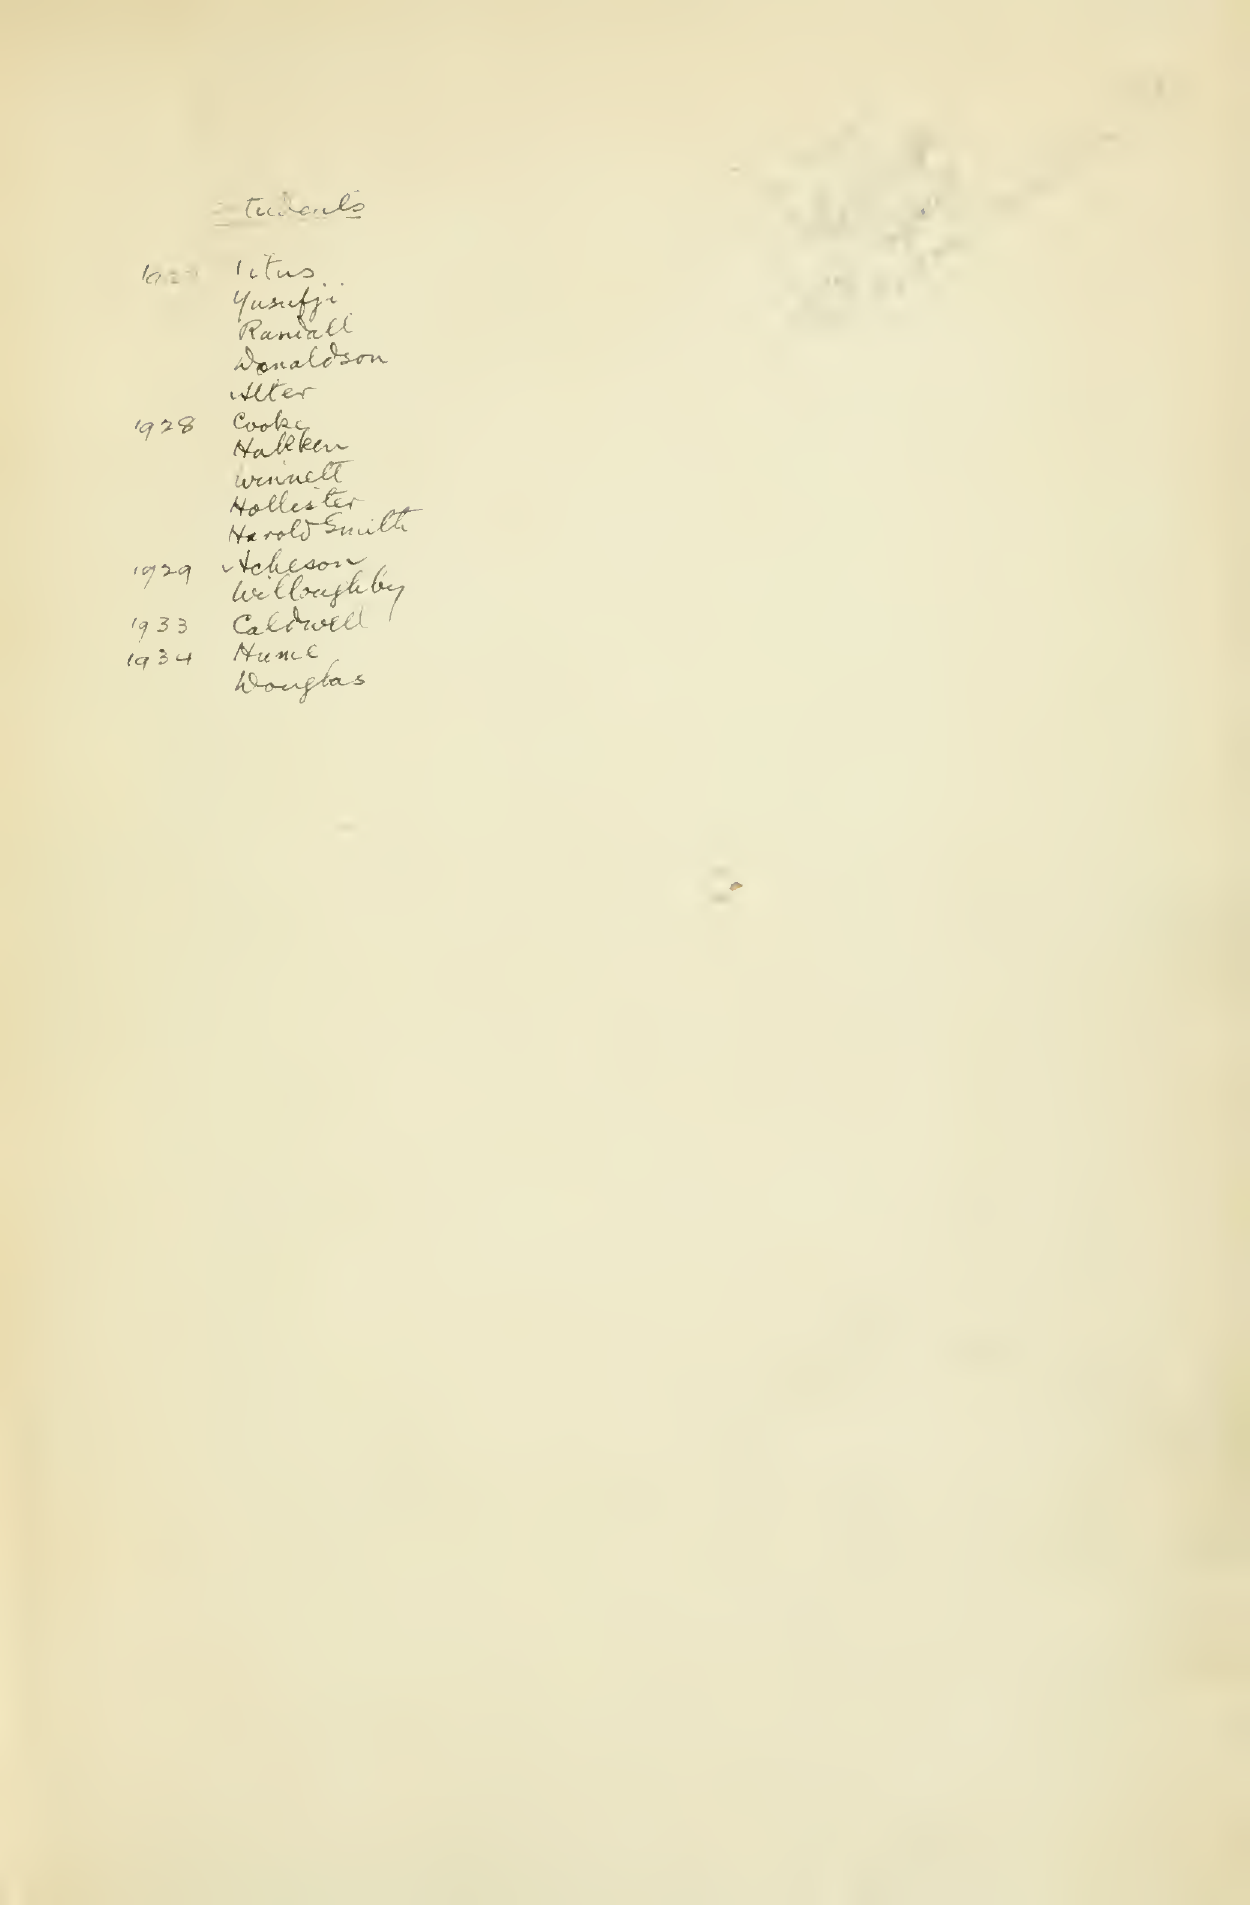 Students
Titus
Yusufji
Randall
Donaldson
Alter
1928 Cooke
Hakken
Winnett
Hollister
Harold Smith
1929 Acheson
Willoughby
1933 Caldwell
1934 Hume
Douglas